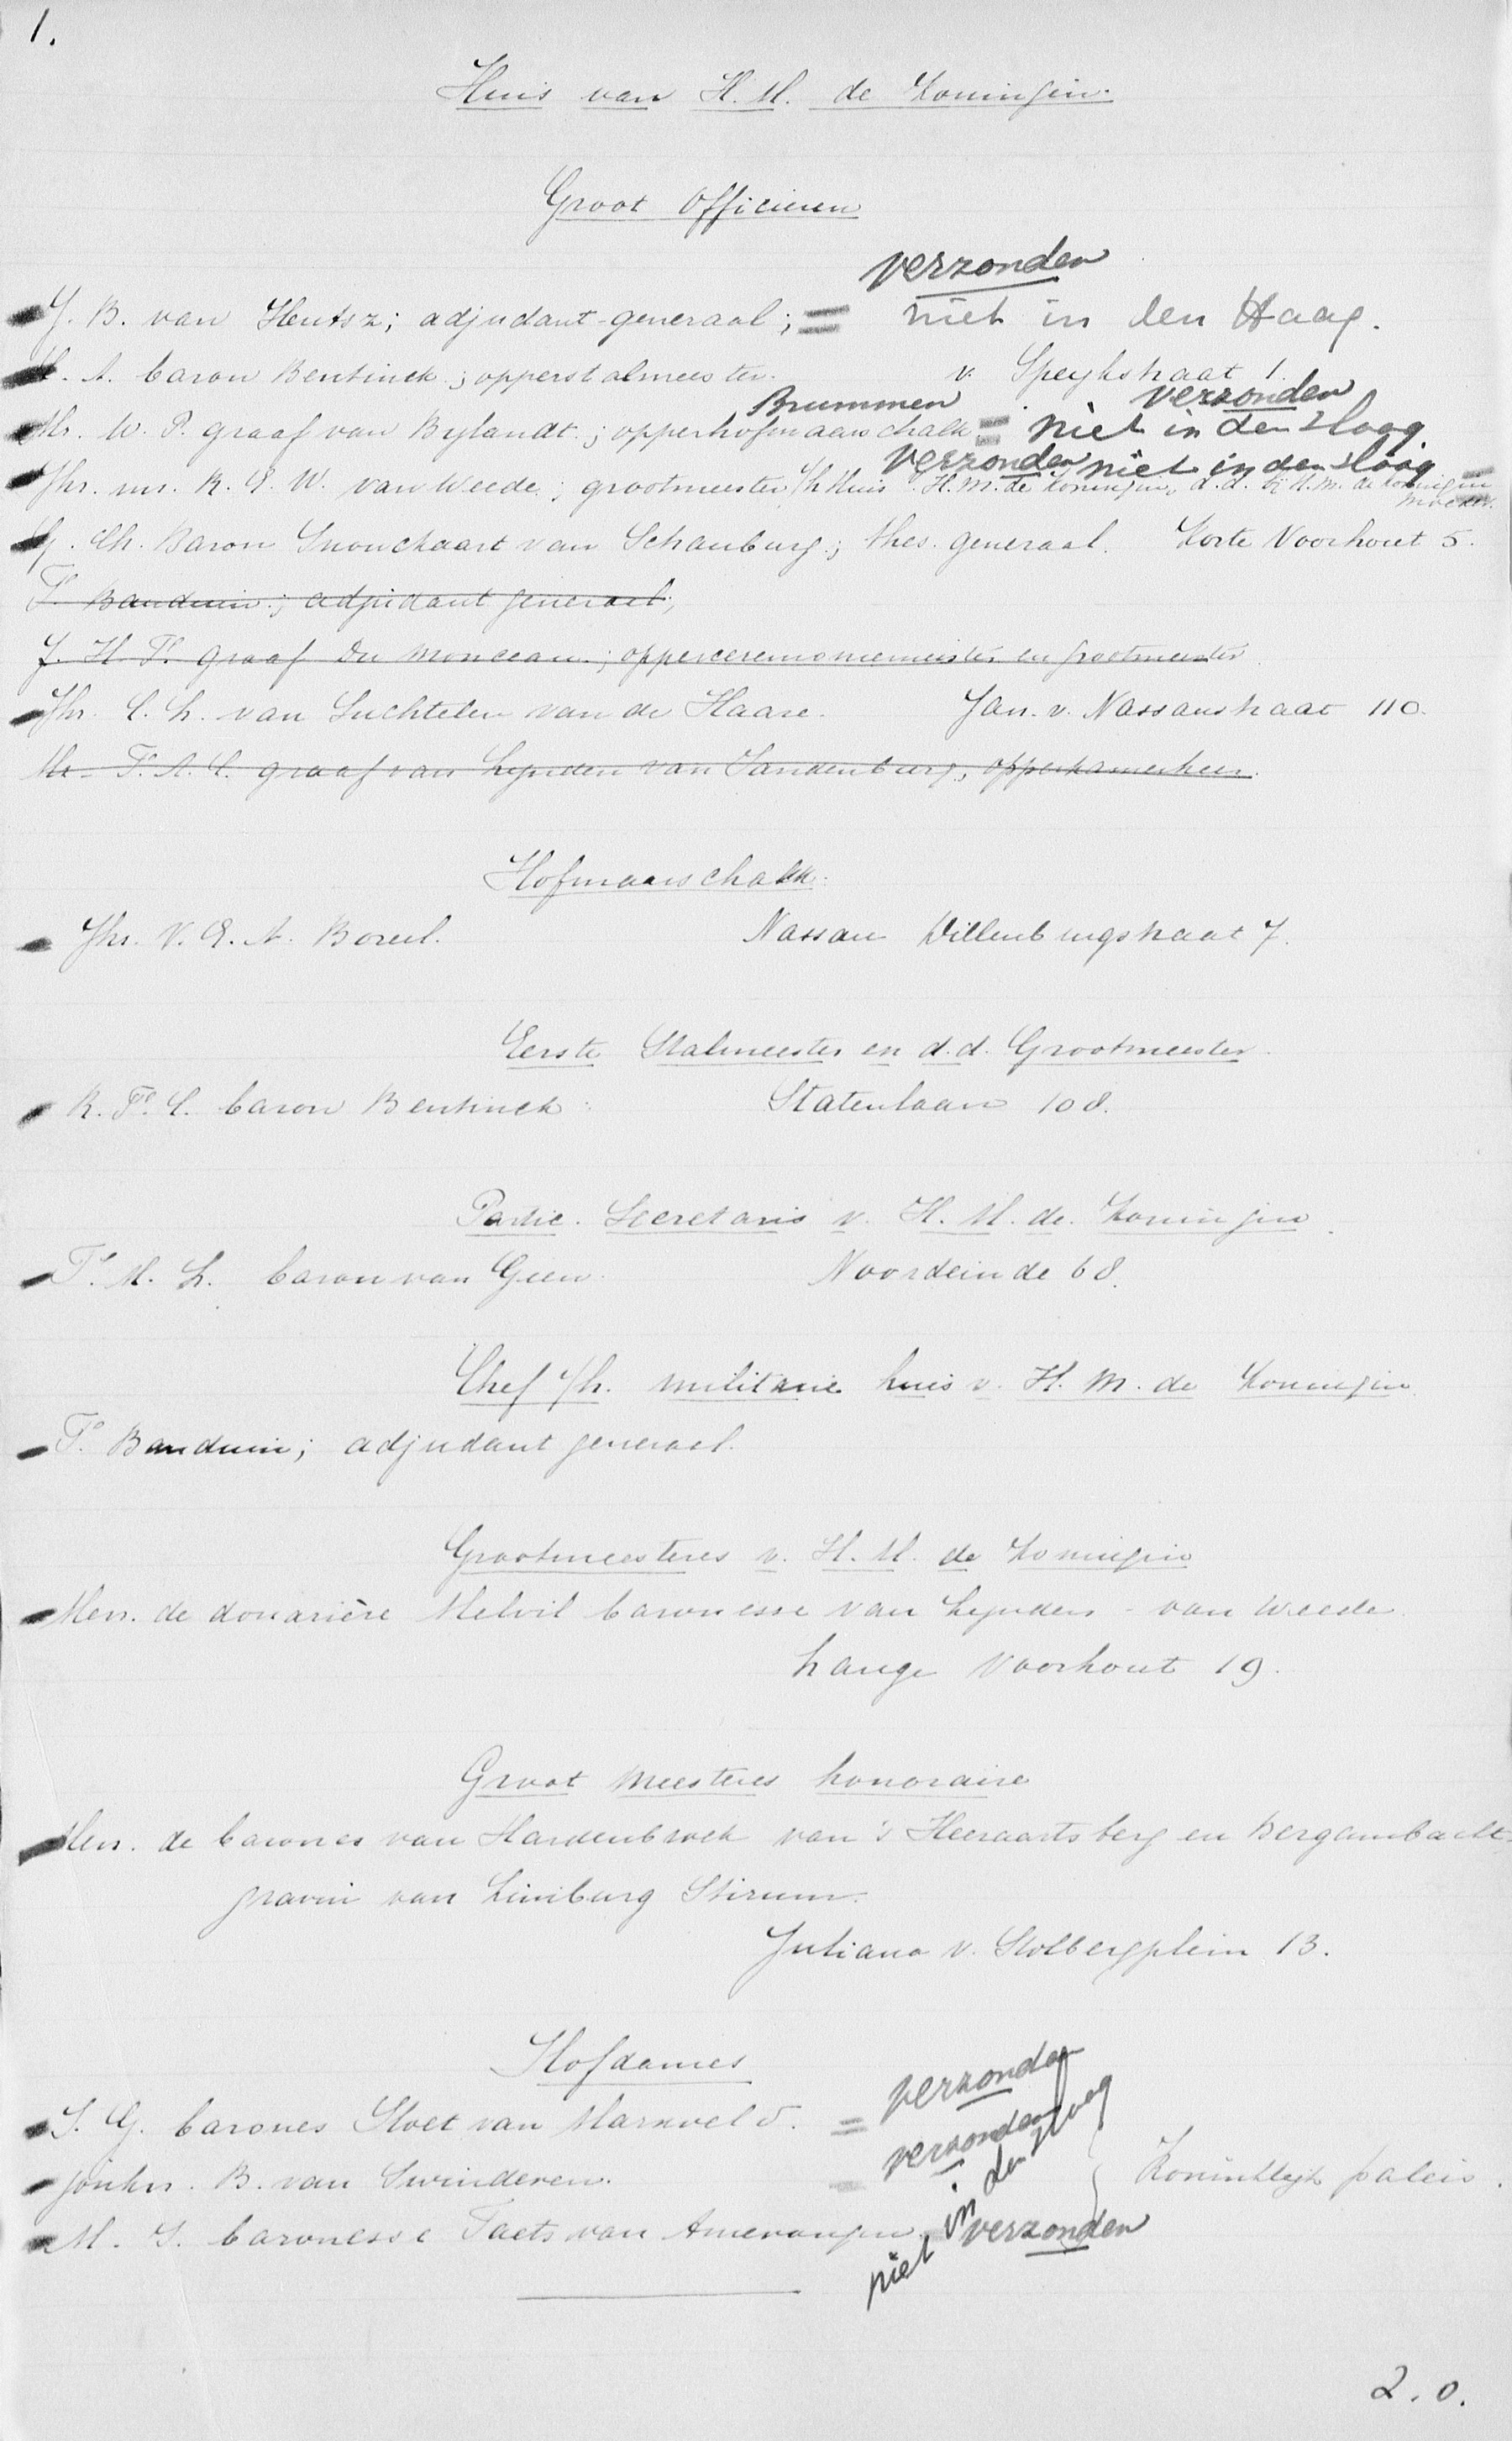 1.
Huis van H. M. de Koningin.
Groot Officieren
verzonden
J. B. van Heutsz; adjudant-generaal; = niet in den Haag.
A. baron Bentinck; opperstalmeester. v. Speykstraat 1.
Brummen verzonden
Mr. W. P. graaf van Bylandt; opperhofmaarschalk = niet in den Haag.
verzonden niet in den Haag
Jhr. mr. R. E. W. van Weede; grootmeester v/h Huis H.M. de Koningin, d.d. bij H.M. de Koningin =
Moeder.
G. Ch. Baron Snouckaart van Schauburg; thes. generaal. Korte Voorhout 5.
F. Bauduin; adjudant generaal;
J. H. F. graaf Du Monceau; opperceremoniemeester en grootmeester
Jhr. C. H. van Suchtelen van de Haare. Jan. v. Nassaustraat 110.
Mr. F. A. C. graaf van Lynden van Sandenburg, opperkamerheer.
Hofmaarschalk.
Jhr. V. E. A. Boreel. Nassau Dillenburgstraat 7.
Eerste Stalmeester en d.d. Grootmeester.
R. F. C. baron Bentinck Statenlaan 108.
Partic. Secretaris v. H. M. de Koningin.
F. M. L. baron van Geen. Noordeinde 68.
Chef v/h. militaire huis v. H. M. de Koningin
F. Bauduin; adjudant generaal.
Grootmeesteres v. H. M. de Koningin
Mevr. de douarière Melvil baronesse van Lynden - van Weede.
Lange Voorhout 19.
Groot Meesteres honoraire
Mevr. de barones van Hardenbroek van 's Heeraartsberg en Bergambacht-
gravin van Limburg Stirum.
Juliana v. Stolbergplein 13.
Hofdames
verzonden
S. G. barones Sloet van Marxveld. =
verzonden
jonkvr. B. van Swinderen. = } Koninklijk paleis.
M. S. baronesse Taets van Amerongen = verzonden
niet in den Haag
2.0.